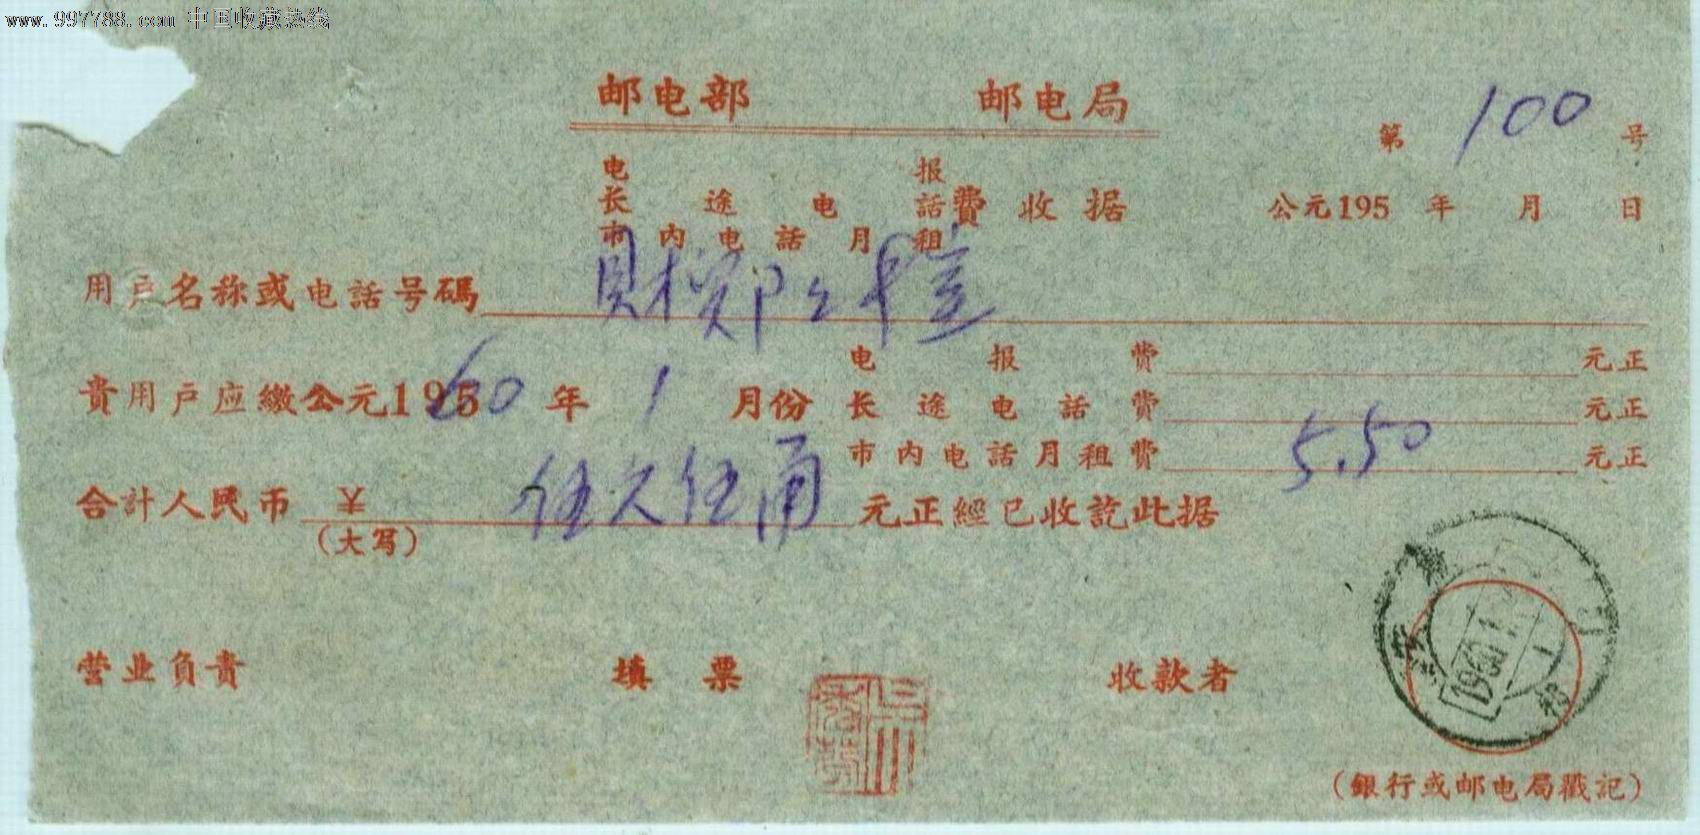 www.997788.com 中国收藏热线
邮电部 邮电局
第 100 号
电报
长途电話費收据
市内电話月租
公元195 年 月 日
用户名称或电話号碼
貴用户应繳公元1960年1月份
电报費 元正
长途电話費 元正
市内电話月租費 5.50 元正
合計人民币 ¥ 伍元伍角 元正經已收訖此据
(大写)
营业负責 填票 收款者
1960.1
(銀行或邮电局戳記)